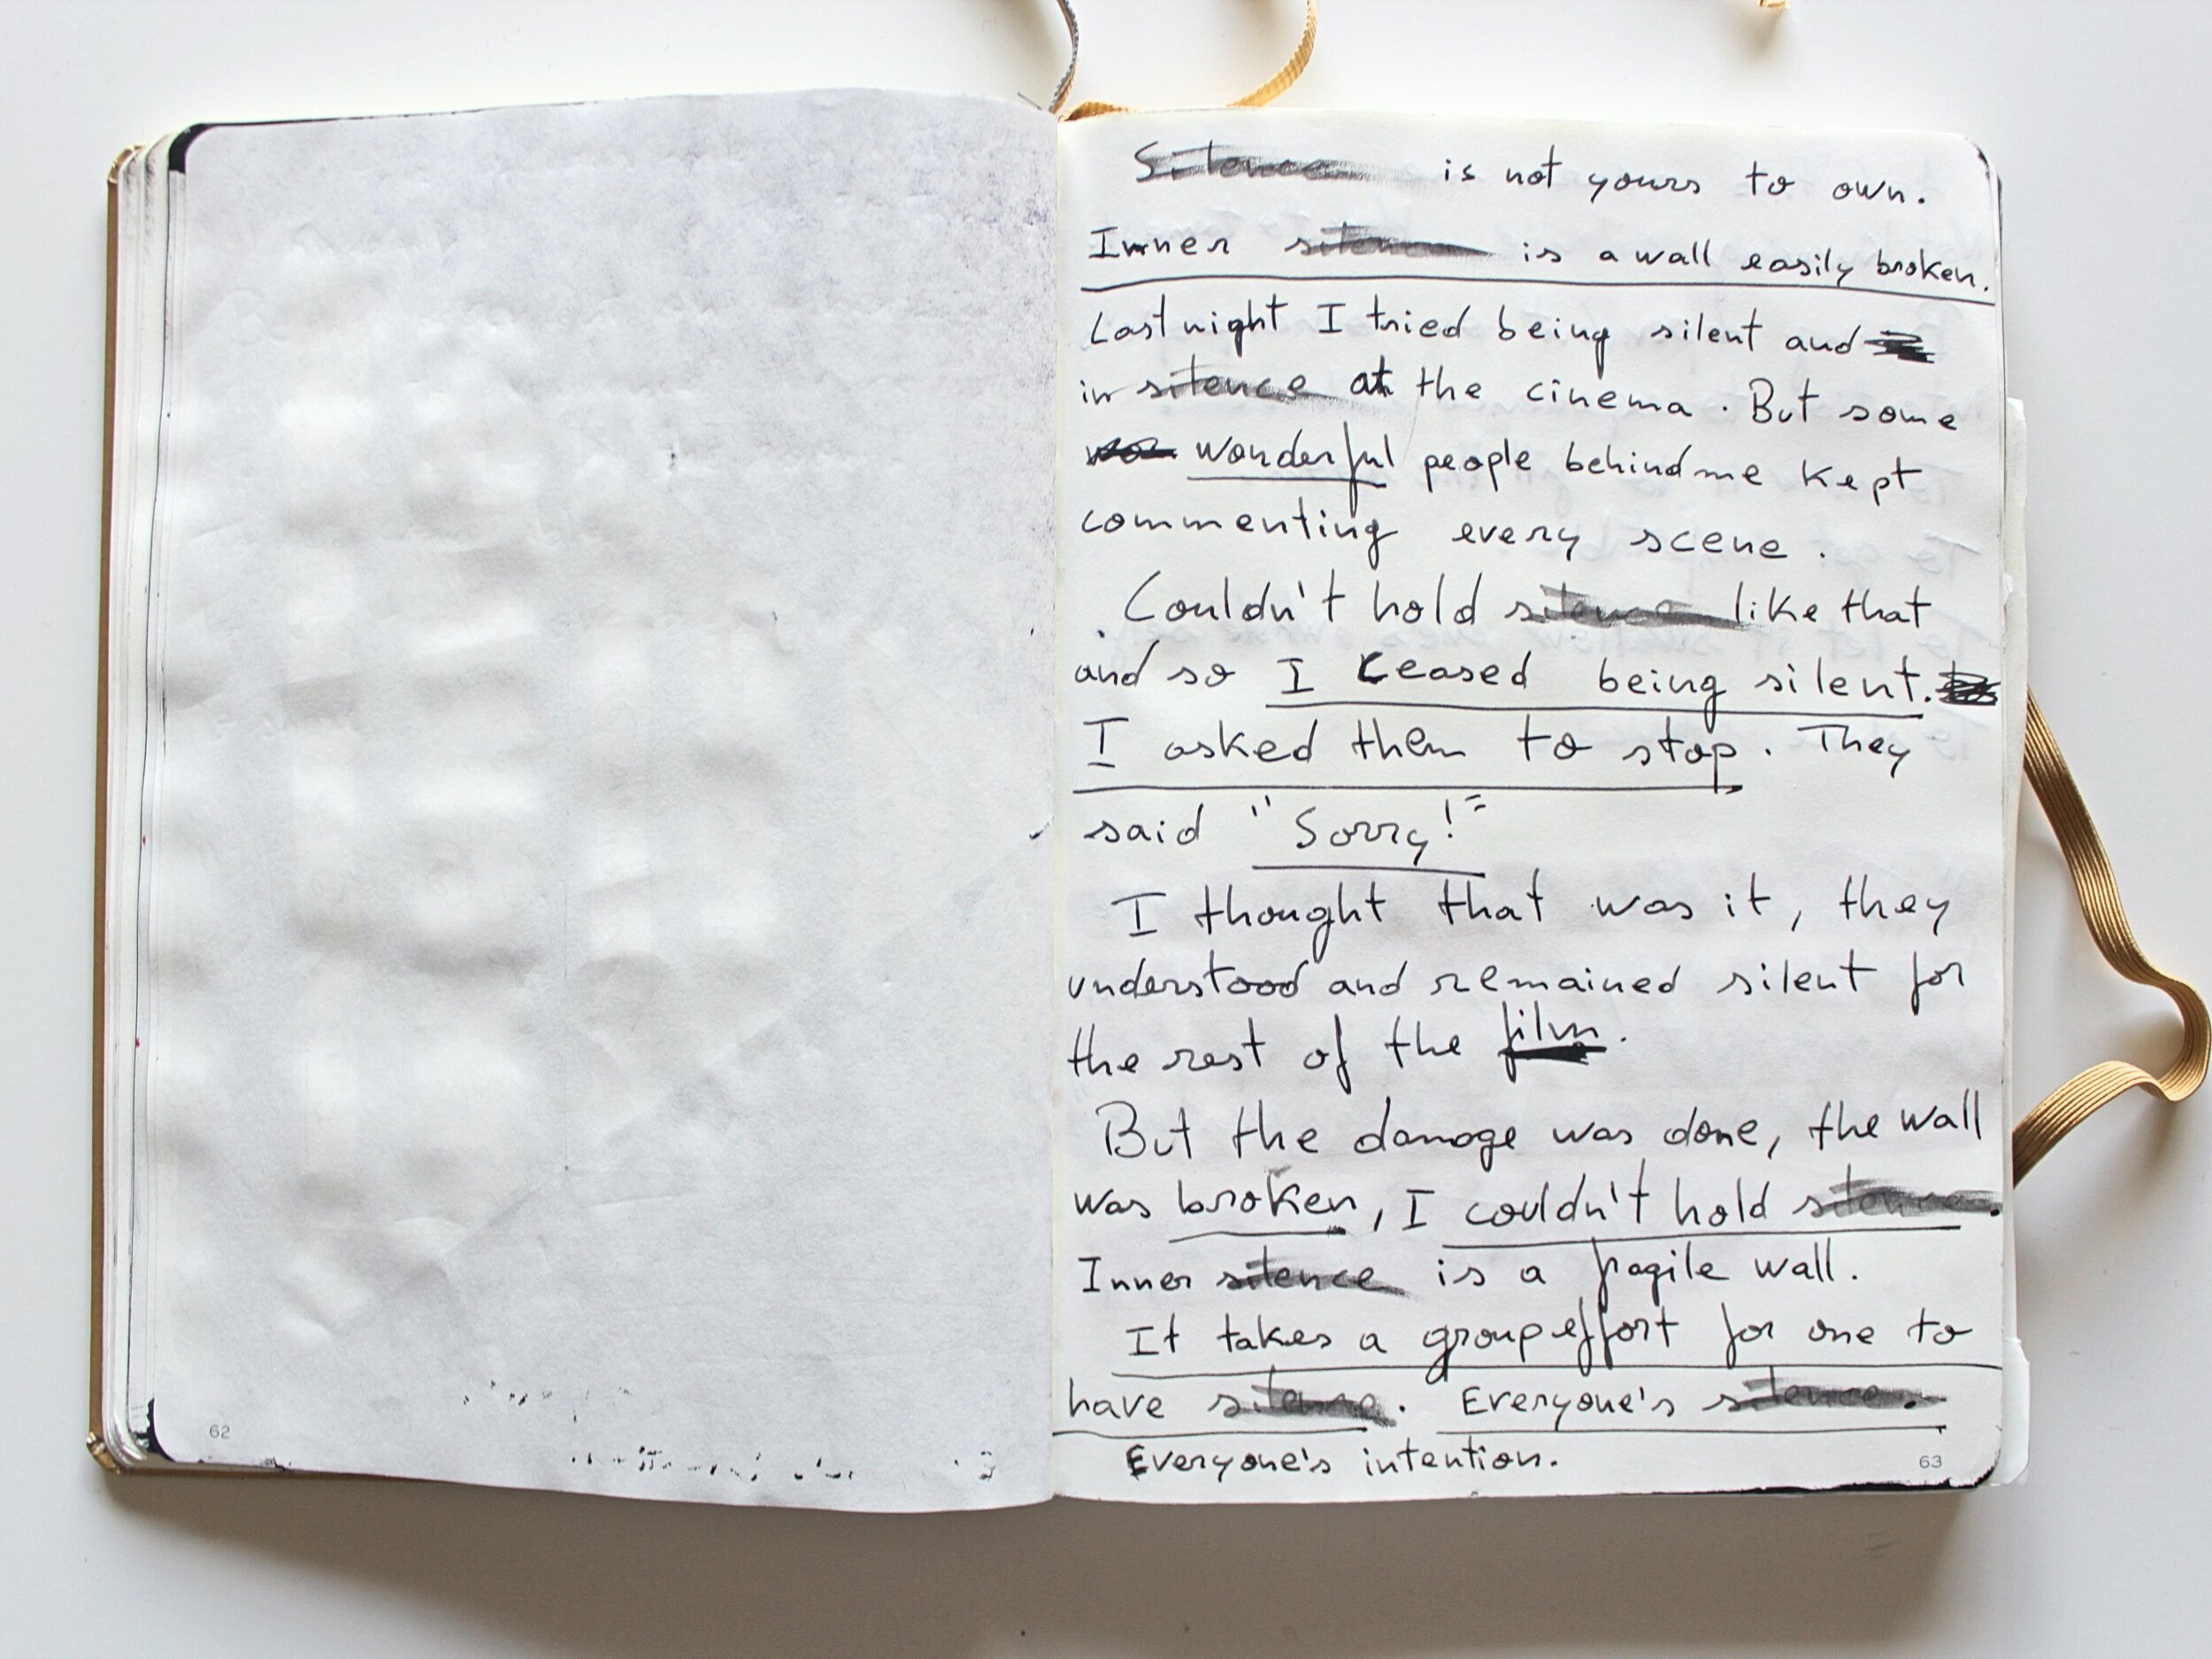 Silence is not yours to own.
Inner silence is a wall easily broken.
Last night I tried being silent and
in silence at the cinema. But some
wonderful people behind me kept
commenting every scene.
Couldn't hold silence like that
and so I ceased being silent.
I asked them to stop. They
said "Sorry!"
I thought that was it, they
understood and remained silent for
the rest of the film.
But the damage was done, the wall
was broken, I couldn't hold silence.
Inner silence is a fragile wall.
It takes a group effort for one to
have silence. Everyone's silence.
Everyone's intention.
62
63